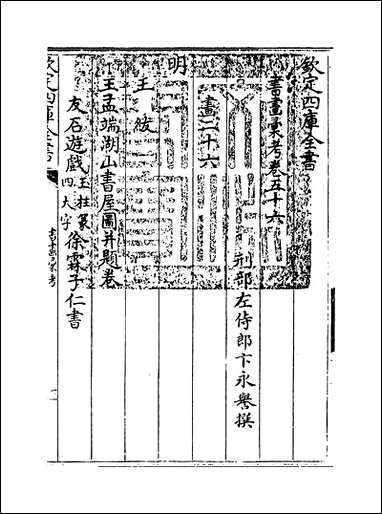 欽定四庫全書
書畫彙考卷五十六
刑部左侍郎卞永譽撰
畫二十六
明
王紱
王孟端湖山書屋圖并題卷
友石遊戲 玉柱篆
四大字 徐霖子仁書
欽定四庫全書
書畫彙考